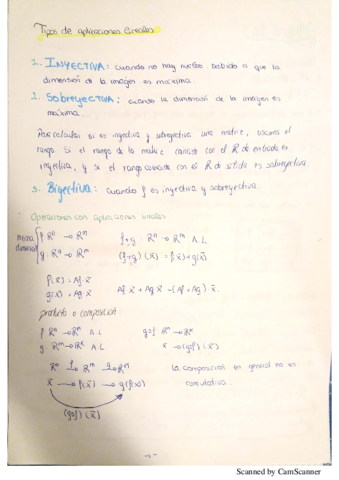 Tipos de aplicaciones lineales
1. INYECTIVA: cuando no hay núcleo. Debido a que la
dimensión de la imagen es máxima.
2. SOBREYECTIVA: cuando la dimensión de la imagen es
máxima.
Para calcular si es inyectiva y sobreyectiva una matriz, usamos el
rango. Si el rango de la matriz coincide con el R de entrada es
inyectiva, y si el rango coincide con el R de salida es sobreyectiva.
3. BIYECTIVA: cuando f es inyectiva y sobreyectiva.
Operaciones con aplicaciones lineales
misma dimensión
f: Rⁿ → Rᵐ
g: Rⁿ → Rᵐ
f+g: Rⁿ → Rᵐ A.L.
(f+g)(x̄) = f(x̄)+g(x̄)
f(x̄) = Af·x̄
g(x̄) = Ag·x̄
Af·x̄ + Ag·x̄ = (Af + Ag)·x̄
producto o composición
f: Rⁿ → Rᵐ A.L
g: Rᵐ → Rᵏ A.L
gof: Rⁿ → Rᵏ
x̄ → (gof)(x̄)
x̄ → f(x̄) → g(f(x̄))
(gof)(x̄)
La composición en general no es
conmutativa.
Scanned by CamScanner